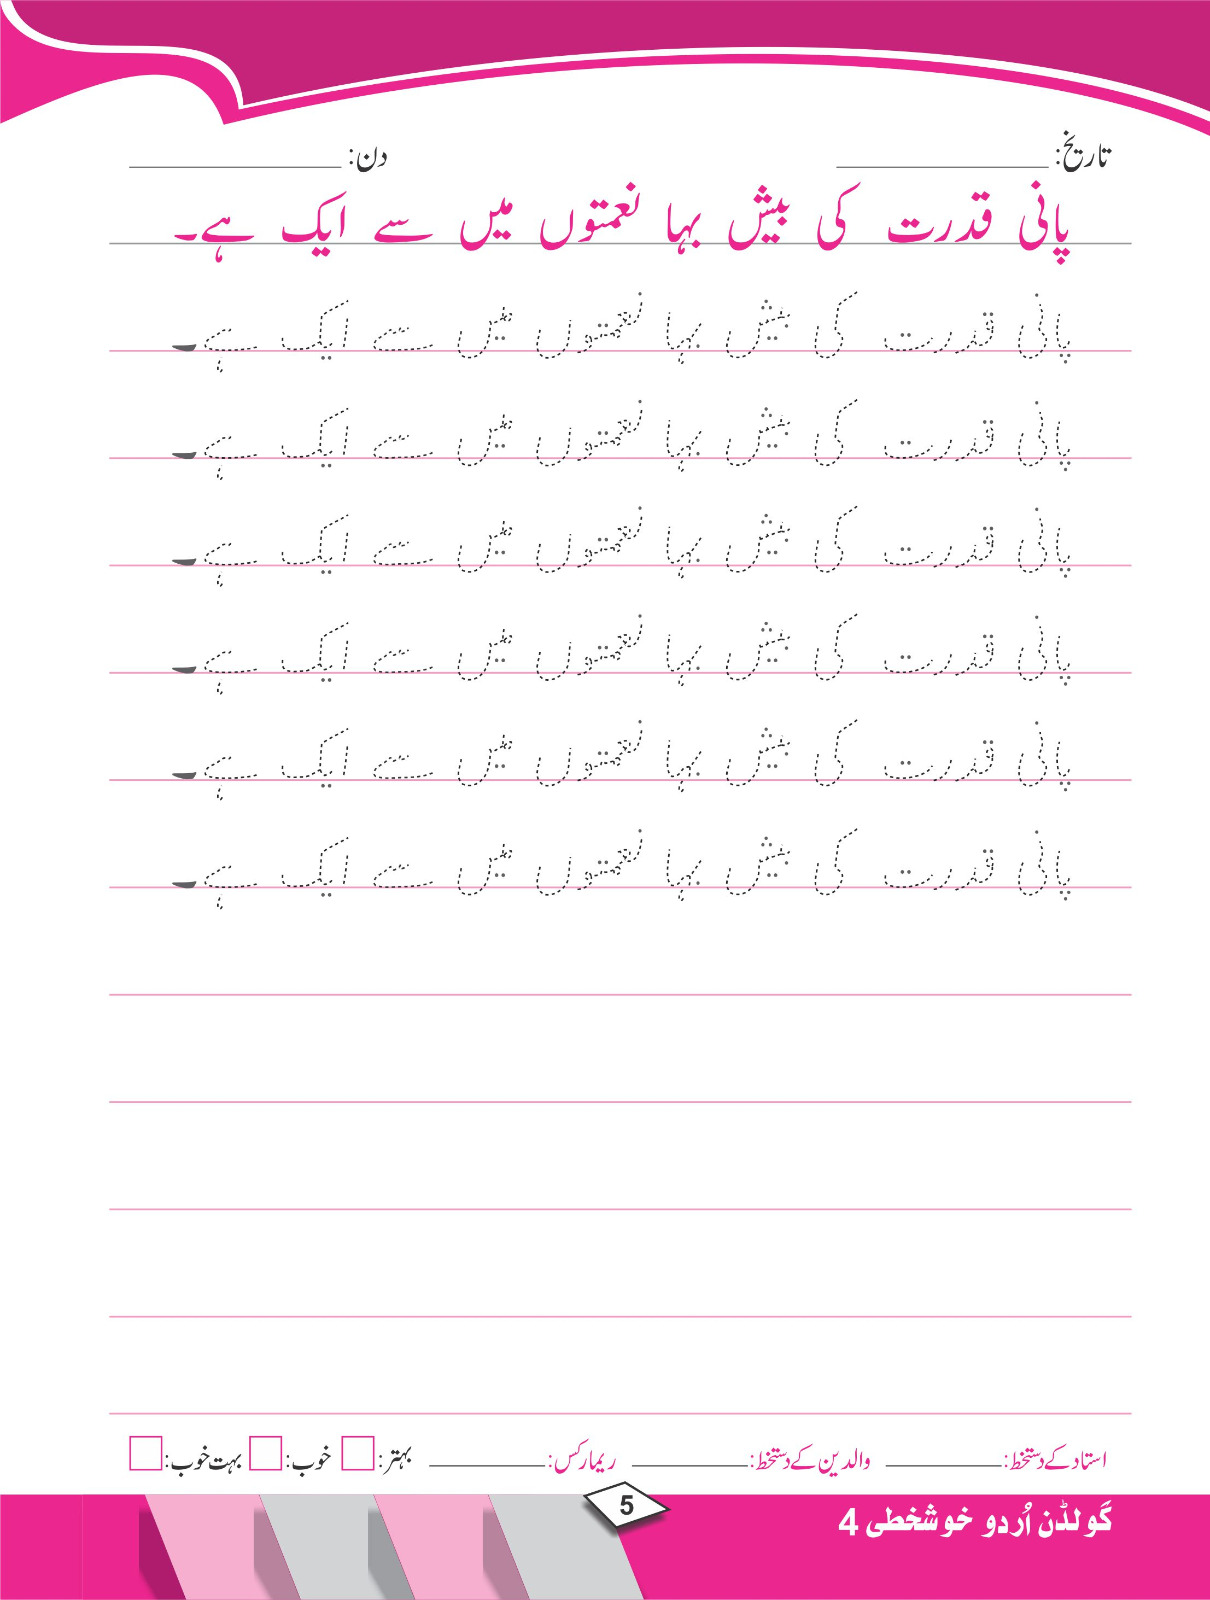 تاریخ: ____________ دن: ____________
پانی قدرت کی بیش بہا نعمتوں میں سے ایک ہے۔
پانی قدرت کی بیش بہا نعمتوں میں سے ایک ہے۔
پانی قدرت کی بیش بہا نعمتوں میں سے ایک ہے۔
پانی قدرت کی بیش بہا نعمتوں میں سے ایک ہے۔
پانی قدرت کی بیش بہا نعمتوں میں سے ایک ہے۔
پانی قدرت کی بیش بہا نعمتوں میں سے ایک ہے۔
پانی قدرت کی بیش بہا نعمتوں میں سے ایک ہے۔
استاد کے دستخط: ________ والدین کے دستخط: ________ ریمارکس: ________ بہتر: خوب: بہت خوب:
5
گولڈن اُردو خوشخطی 4